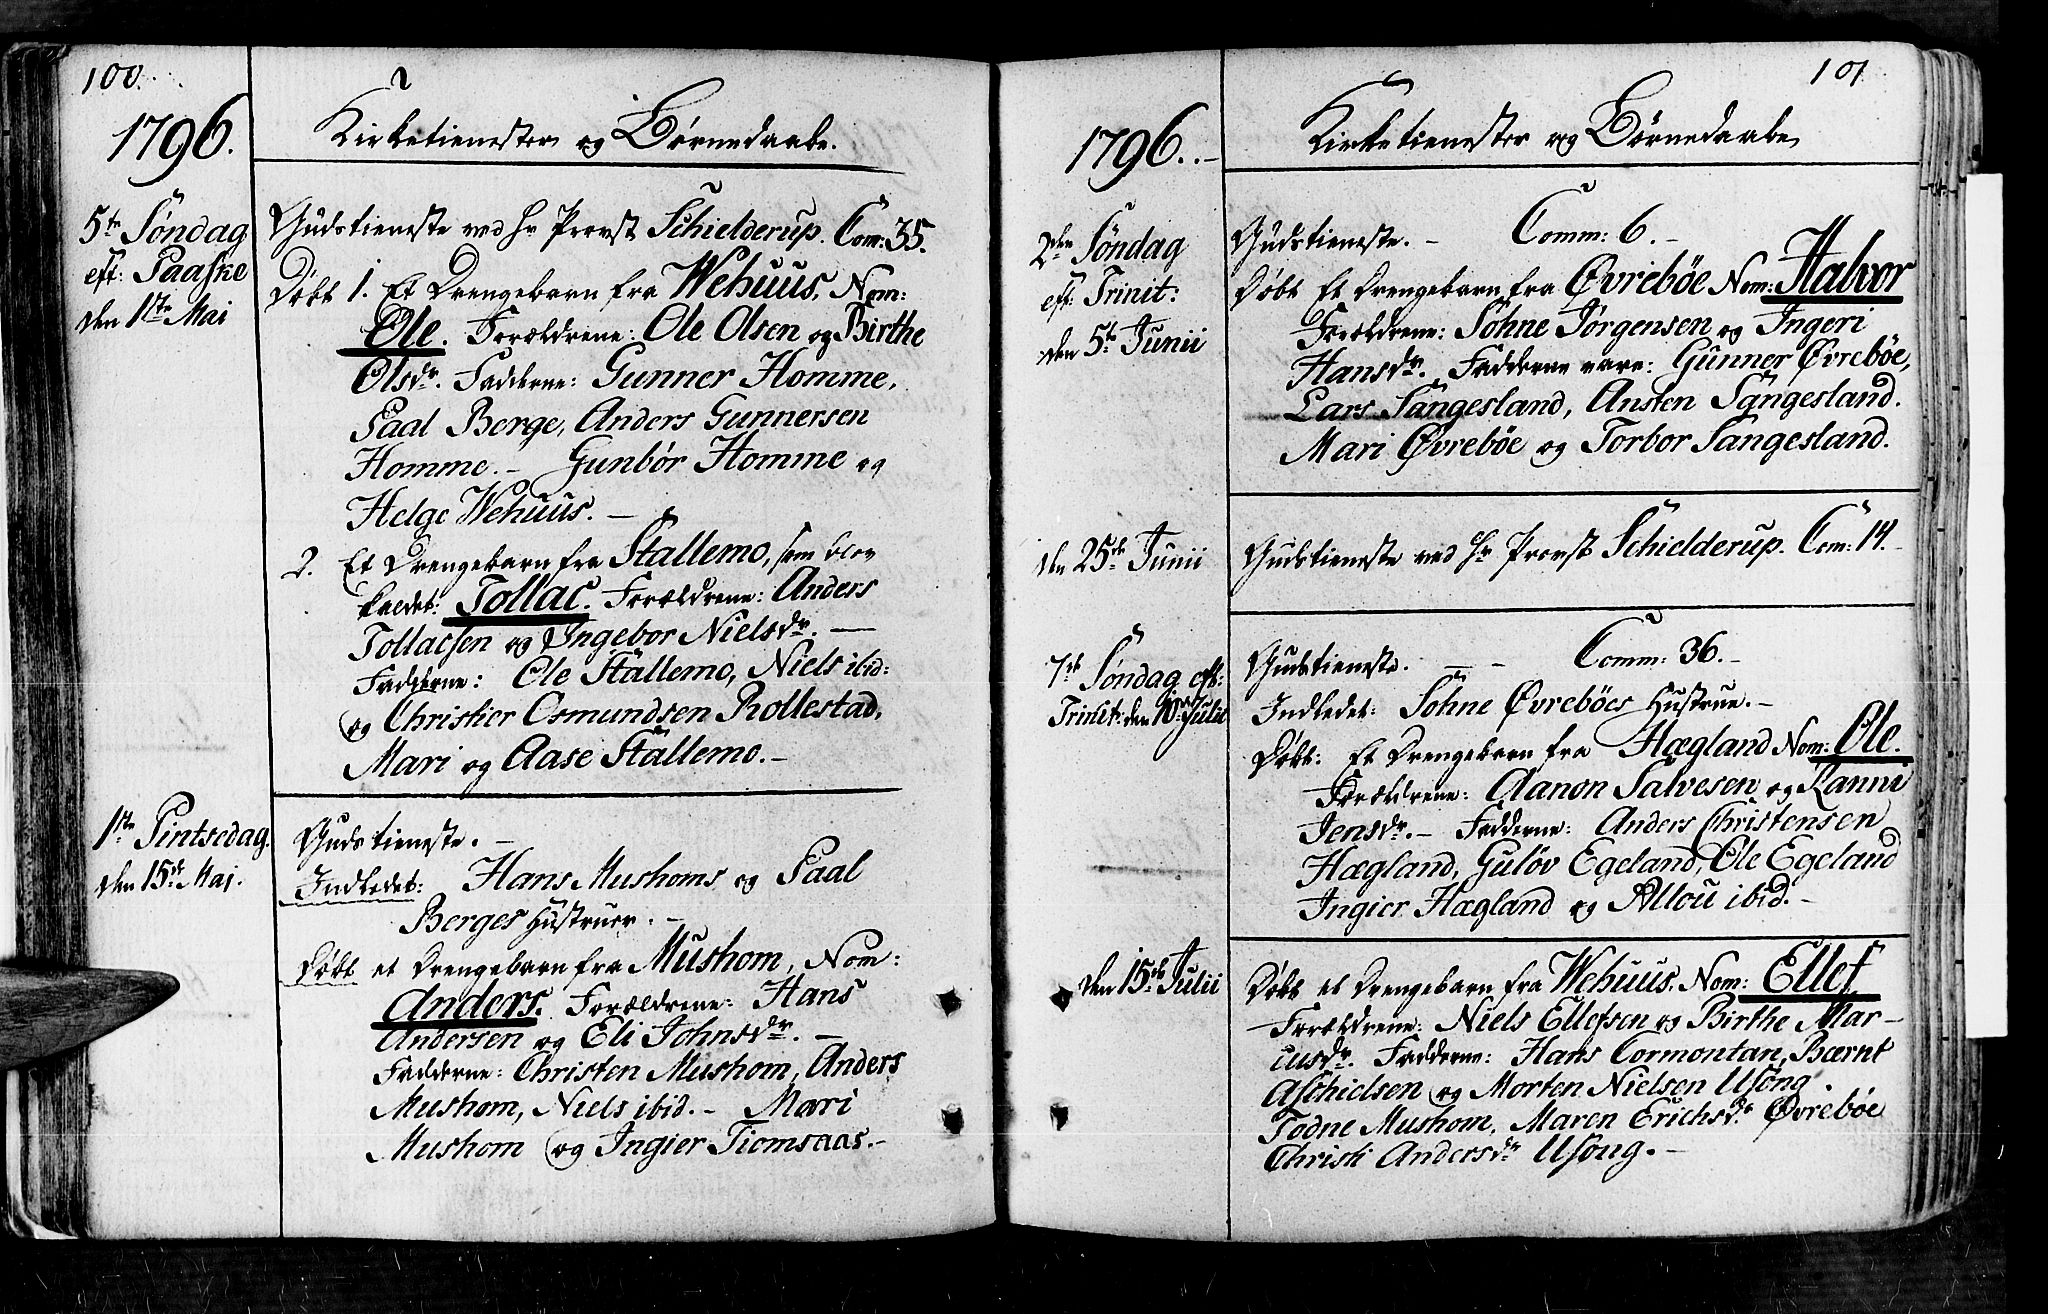 100.
1796.
Kirketienester og Børnedaabe.
5te Søndag
eft: Paaske
den 1te Mai
Gudstieneste ved Hr Provst Schielderup. Com: 35.
Døbt 1. Et Drengebarn fra Wehuus, Nom:
Ole. Forældrene: Ole Olsen og Birthe
Olsdr. Fadderne: Gunner Homme,
Paal Berge, Anders Gunnersen
Homme. – Gunbør Homme og
Helge Wehuus. –
2. Et Drengebarn fra Stallemo, som blev
kaldet: Tollac. Forældrene: Anders
Tollacsen og Ingebor Nielsdr. —
Fadderne: Ole Stallemo, Niels ibid:
og Christier Osmundsen Rollestad,
Mari og Aase Stallemo. –
1te Pintsedag.
den 15de Maj.
Gudstieneste. –
Indledet: Hans Mushoms og Paal
Berges Hustruer. –
Døbt et Drengebarn fra Mushom, Nom:
Anders. Forældrene: Hans
Andersen og Eli Johnsdr. –
Fadderne: Christen Mushom, Anders
Mushom, Niels ibid. – Mari
Mushom og Ingier Tiomsaas. –
101
1796. –
Kirketienester og Børnedaabe
2den Søndag
eft: Trinit:
den 5te Junii
Gudstieneste. – Comm: 6. –
Døbt Et Drengebarn fra Øvrebøe Nom: Halvor
Forældrene: Søhne Jørgensen og Ingeri
Hansdr. Fadderne vare: Gunner Øvrebøe,
Lars Sangesland, Ansten Sangesland.
Mari Øvrebøe og Torbor Sangesland.
den 25de Junii
Gudstieneste ved Hr Provst Schielderup. Com: 14. –
7de Søndag eft:
Trinit: den 10de Julii
Gudstieneste. – – Comm: 36. –
Indledet: Søhne Øvrebøes Hustrue. –
Døbt: Et Drengebarn fra Hægland Nom: Ole.
Forældrene: Aanon Salvesen og Ranni
Jensdr. – Fadderne: Anders Christensen
Hægland, Guløv Egeland, Ole Egeland
Ingier Hægland og Allou ibid. –
den 15de Julii
Døbt et Drengebarn fra Wehuus. Nom: Ellef
Forældrene: Niels Ellefsen og Birthe Mar–
cusdr. Fadderne: Hans Cormontan, Bærnt
Aschielsen og Morten Nielsen Usong.
Todne Mushom, Maren Erichsdr Øvrebøe
Christi Andersdr Usong. –